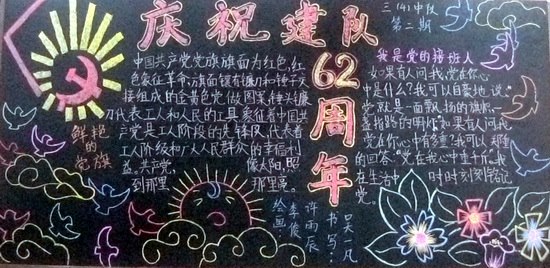 庆祝建队
62周年
三(4)中队
第二期
中国共产党党旗旗面为红色,红
色象征革命;旗面缀有镰刀和锤子交
接组成的金黄色党徽图案。锤头镰
刀代表工人和人民的工具象征着中国共
产党是工人阶段的先锋队,代表着
工人阶级和广大人民群众的幸福利
益。共产党, 像太阳,照
到那里 那里亮
鲜艳
的
党旗
我是党的接班人
如果有人问我党在你心
中是什么?我可以自豪地说:
"党就是一面飘扬的旗帜一
盏指路的明灯如果有人问我
党在你心中有多重?我可以郑重
的回答:"党在我心中重千斤。我
在生活中 时时刻刻铭记
党。
书写:吴一凡
许雨辰
绘画:李俊